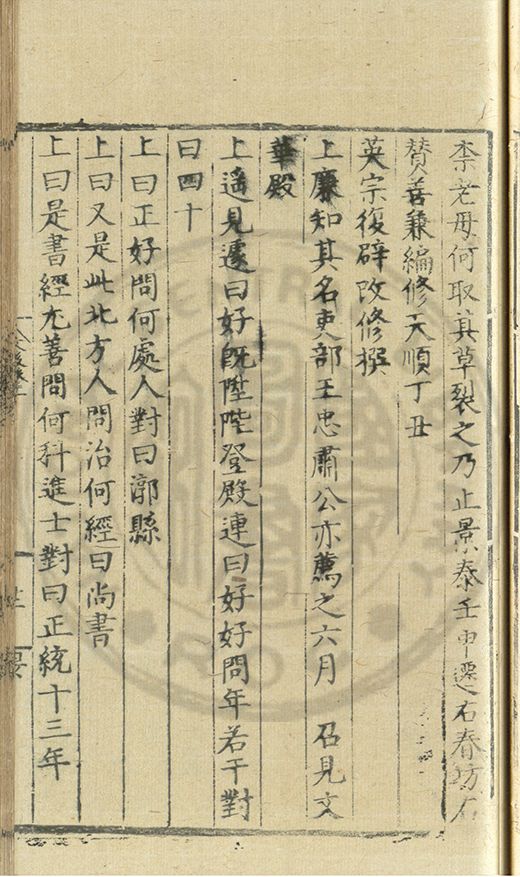 柰老母何取其草裂之乃止景泰壬申遷右春坊右
贊善兼編修天順丁丑
英宗復辟改修撰
上廉知其名吏部王忠肅公亦薦之六月 召見文
華殿
上遙見遽曰好既陞陛登殿連曰好好問年若干對
曰四十
上曰正好問何處人對曰漷縣
上曰又是此北方人問治何經曰尚書
上曰是書經尤善問何科進士對曰正統十三年